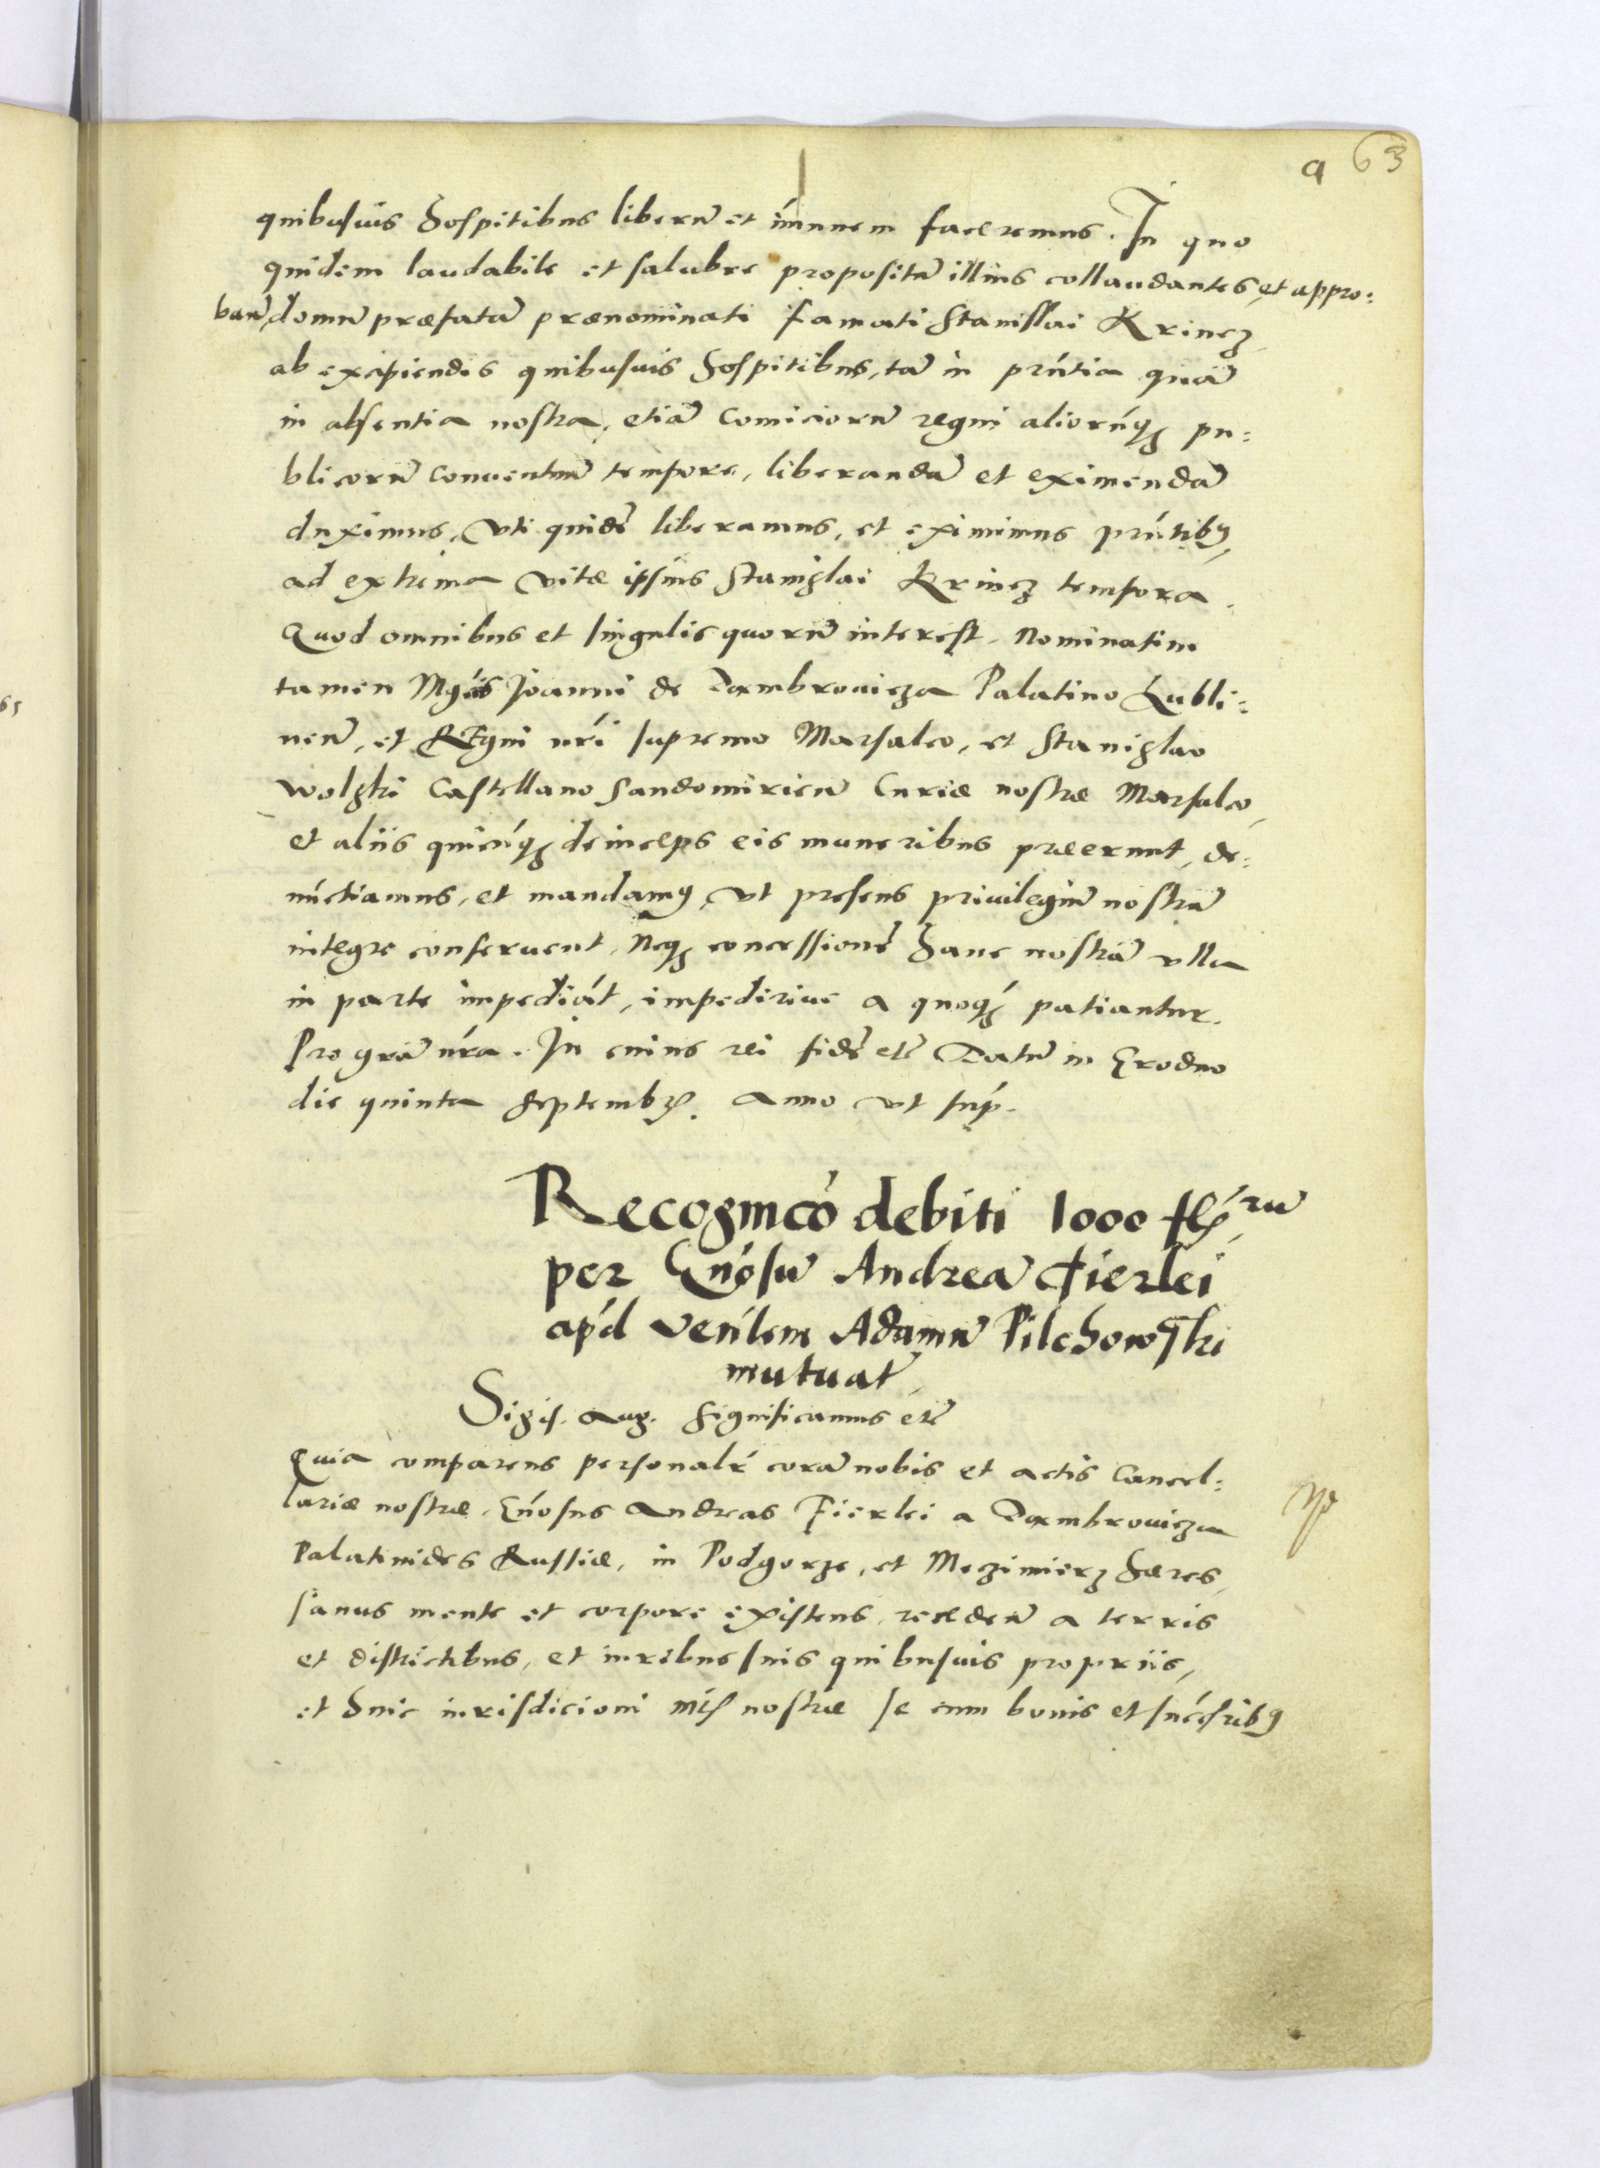 a 63
quibusuis hospitibus liberũ et ímunem faceremus. In quo
quidem laudabile et salubre propositũ illius collaudantes et appro:
ban̄, domũ præfatã prænominati famati Stanislai Krincz
ab excipiendis quibusuis hospitibus, tã in prńtia quã
in absentia nostra, etiã Comiciorũ regni aliorúq₃ pu:
blicorũ conuentuũ tempore, liberandã et eximendã
duximus, Vti quidẽ liberamus, et eximimus prńtibꝰ,
ad extrema vitæ ipsius Stanislai Krincz tempora.
Quod omnibus et singulis quorũ interest, Nominatim
tamen Mgcis Joanni de Dambrouicza Palatino Lubli:
nen̄, et Regni nrí supremo Marsalco, et Stanislao
Wolski Castellano Sandomirien̄ Curiæ nostræ Marsalco,
et aliis quicúq₃ deinceps eis muneribus præerunt, de:
núctiamus, et mandamꝰ, vt presens priuilegiũ nostrũ
integre conseruent, Neq₃ concessionẽ hanc nostrã vlla
in parte impediát, impediriue a quoq₃ patiantur.
Pro grã nrá. In cuius rei fidẽ etc̃ Datũ in Grodno
die quinta Septembr̃. Anno vt suṕ.
Recognicó debiti 1000 fl.rũ
per Gńosũ Andreã Fierlei
apd́ Veńlem Adamũ Pilchowski
mutuat̃
Sigis. Aug. Significamus etc̃
Quia comparens personalŕ corã nobis et actis Cancel:
lariæ nostræ, Gńosus Andreas Fierlei a Dambrouicza
Palatinides Russiæ, in Podgorze, et Meczimierz hæres,
sanus mente et corpore existens, receden̄ a terris
et districtibus, et iuribus suis quibusuis propriis,
et huic iurisdicioni nrǽ nostræ se cum bonis et succesribꝰ